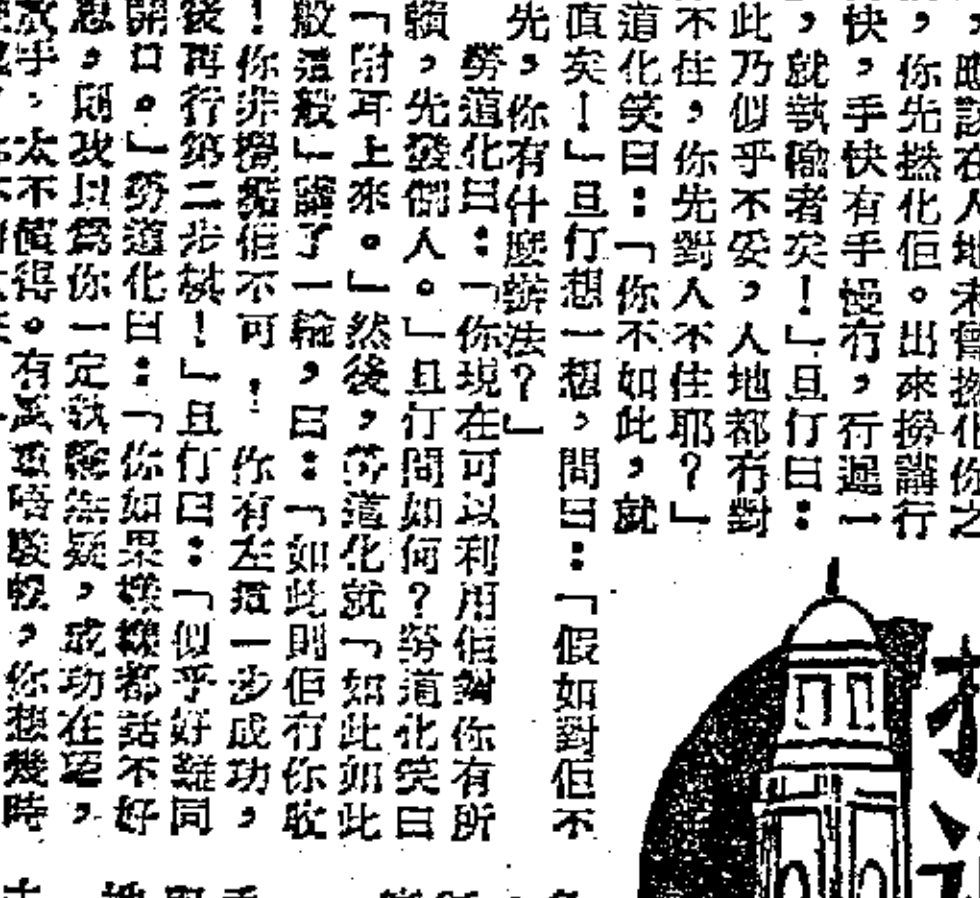 ，應該在人地未曾撚化你之
，你先撚化佢。出來撈講行
快，手快有手慢冇，行遲一
，就執輸者矣！」且打曰：
此乃似乎不妥，人地都冇對
不住，你先對人不住耶？」
道化笑曰：「你不如此，就
直矣！」且打想一想，問曰：「假如對佢不
先，你有什麼辦法？」
勞道化曰：「你現在可以利用佢對你有所
賴，先發制人。」且打問如何？勞道化笑曰
「附耳上來。」然後，勞道化就「如此如此
般這般」了一輪，曰：「如此則佢有你收
！你非攪掂佢不可！你有左這一步成功，
後再行第二步棋！」且打曰：「似乎好難同
開口。」勞道化曰：「你如果樣樣都話不好
思，則我以爲你一定執輸無疑，成功在望，
放手，太不值得。有風唔駛，你想幾時